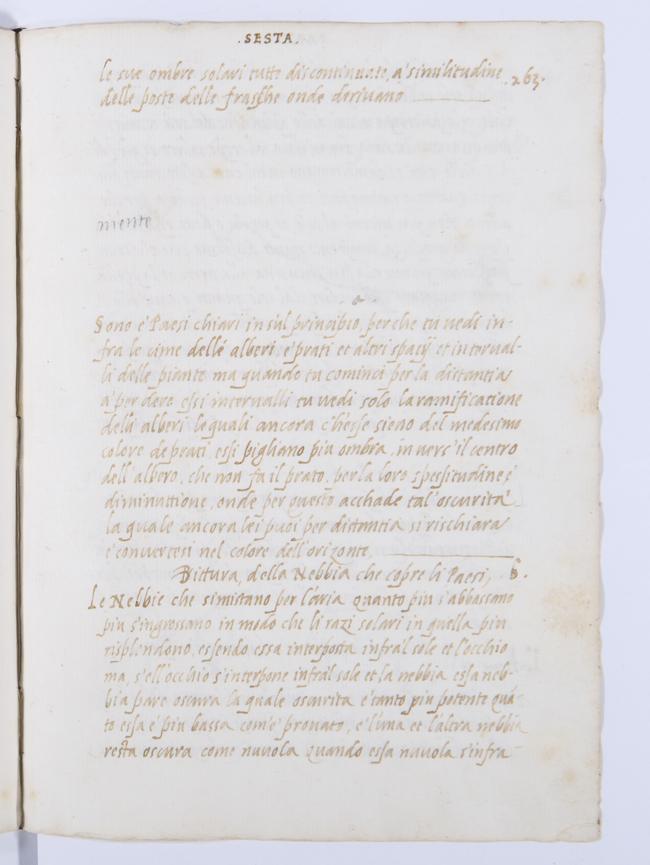 .SESTA.
le sue ombre solari tutte discontinuate, a' similitudine .263.
delle poste delle frasche onde deriuano
niente
Sono e' Paesi chiari in sul principio, perche tu uedi in-
fra le cime delle alberi, e' prati et altri spatij et interual-
li delle piante ma quando tu cominci per la distantia
a' perdere essi interualli tu uedi solo la ramificatione
delli alberi lequali ancora ch'esse sieno del medesimo
colore de prati, essi pigliano piu ombra, in uers' il centro
dell' albero, che non fa il prato, per la loro spessitudine e'
diminuttione, onde per questo acchade tal' oscurita'
la quale ancora lei puoi per distantia si rischiara
e' conuertesi nel colore dell' orizonte.
Pittura, della Nebbia che copre li Paesi, .B.
Le Nebbie che si mistano per l'aria quanto piu s'abbassano
piu s'ingrossano in modo che li razi solari in quella piu
risplendono, essendo essa interposta infra'l sole et l'occhio
ma, s'ell' occhio s'interpone infra'l sole et la nebbia essa neb-
bia pare oscura la quale oscurita e' tanto piu potente quā-
to essa e' piu bassa com'e' prouato, e' l'una et l'altra nebbia
resta oscura come nuuola quando essa nuuola s'infra-